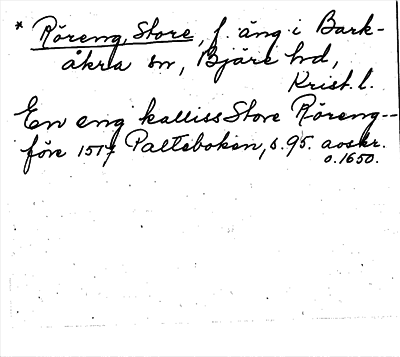 * Röreng, Store, f. äng i Bark-
åkra sn, Bjäre hd,
Krist. l.
En eng kalliss Store Röreng--
före 1517 Palteboken, s. 95. avskr.
o. 1650.